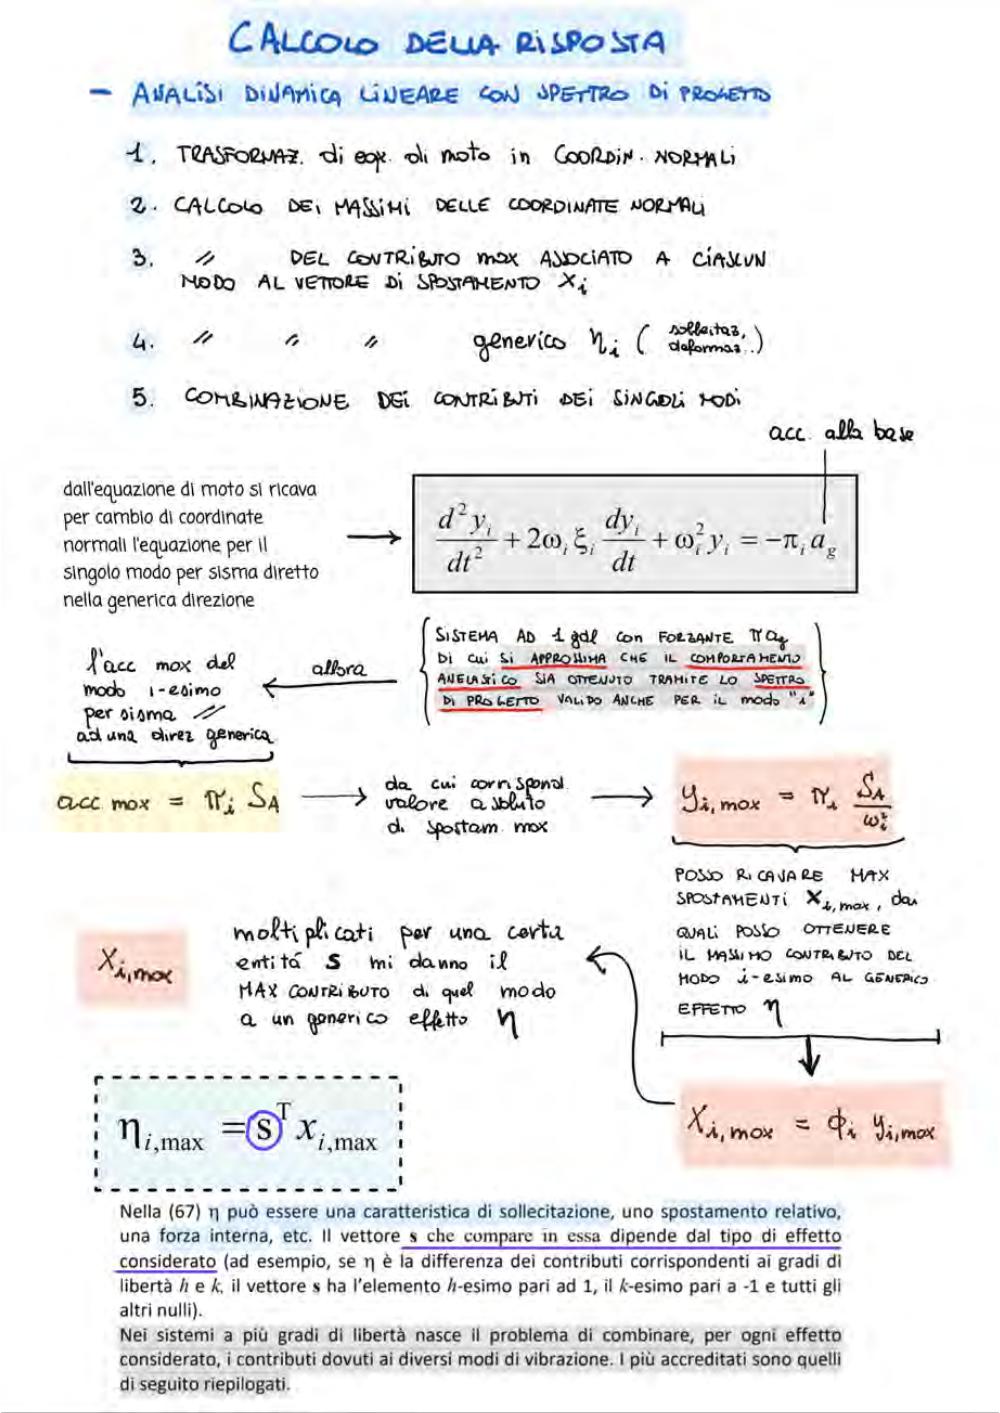 CALCOLO DELLA RISPOSTA
- ANALISI DINAMICA LINEARE CON SPETTRO DI PROGETTO
1. TRASFORMAZ. di eqx. di moto in COORDIN. NORMALI
2. CALCOLO DEI MASSIMI DELLE COORDINATE NORMALI
3. // DEL CONTRIBUTO max ASSOCIATO A CIASCUN
MODO AL VETTORE DI SPOSTAMENTO Xi
4. // // // generico ηi ( sollecitaz,
deformaz..)
5. COMBINAZIONE DEI CONTRIBUTI DEI SINGOLI MODI
acc. alla base
dall'equazione di moto si ricava
per cambio di coordinate
normali l'equazione per il
singolo modo per sisma diretto
nella generica direzione
→ d²yᵢ/dt² + 2ωᵢ ξᵢ dyᵢ/dt + ωᵢ² yᵢ = −πᵢ a_g
SISTEMA AD 1 gdl con FORZANTE π ag
DI CUI SI APPROSSIMA CHE IL COMPORTAMENTO
ANELASTICO SIA OTTENUTO TRAMITE LO SPETTRO
DI PROGETTO VALIDO ANCHE PER IL modo "i"
allora
l'acc max del
modo i-esimo
per sisma //
ad una direz generica
acc max = πi SA → da cui corrispond
valore assoluto
di spostam max
→ yi,max = πi SA/ωi²
POSSO RICAVARE MAX
SPOSTAMENTI Xi,max, dai
QUALI POSSO OTTENERE
IL MASSIMO CONTRIBUTO DEL
MODO i-esimo AL GENERICO
EFFETTO η
Xi,max = ϕi yi,max
Xi,max
moltiplicati per una certa
entitá S mi danno il
MAX CONTRIBUTO di quel modo
a un generico effetto η
ηi,max = sᵀ xi,max
Nella (67) η può essere una caratteristica di sollecitazione, uno spostamento relativo,
una forza interna, etc. Il vettore s che compare in essa dipende dal tipo di effetto
considerato (ad esempio, se η è la differenza dei contributi corrispondenti ai gradi di
libertà h e k, il vettore s ha l'elemento h-esimo pari ad 1, il k-esimo pari a -1 e tutti gli
altri nulli).
Nei sistemi a più gradi di libertà nasce il problema di combinare, per ogni effetto
considerato, i contributi dovuti ai diversi modi di vibrazione. I più accreditati sono quelli
di seguito riepilogati.